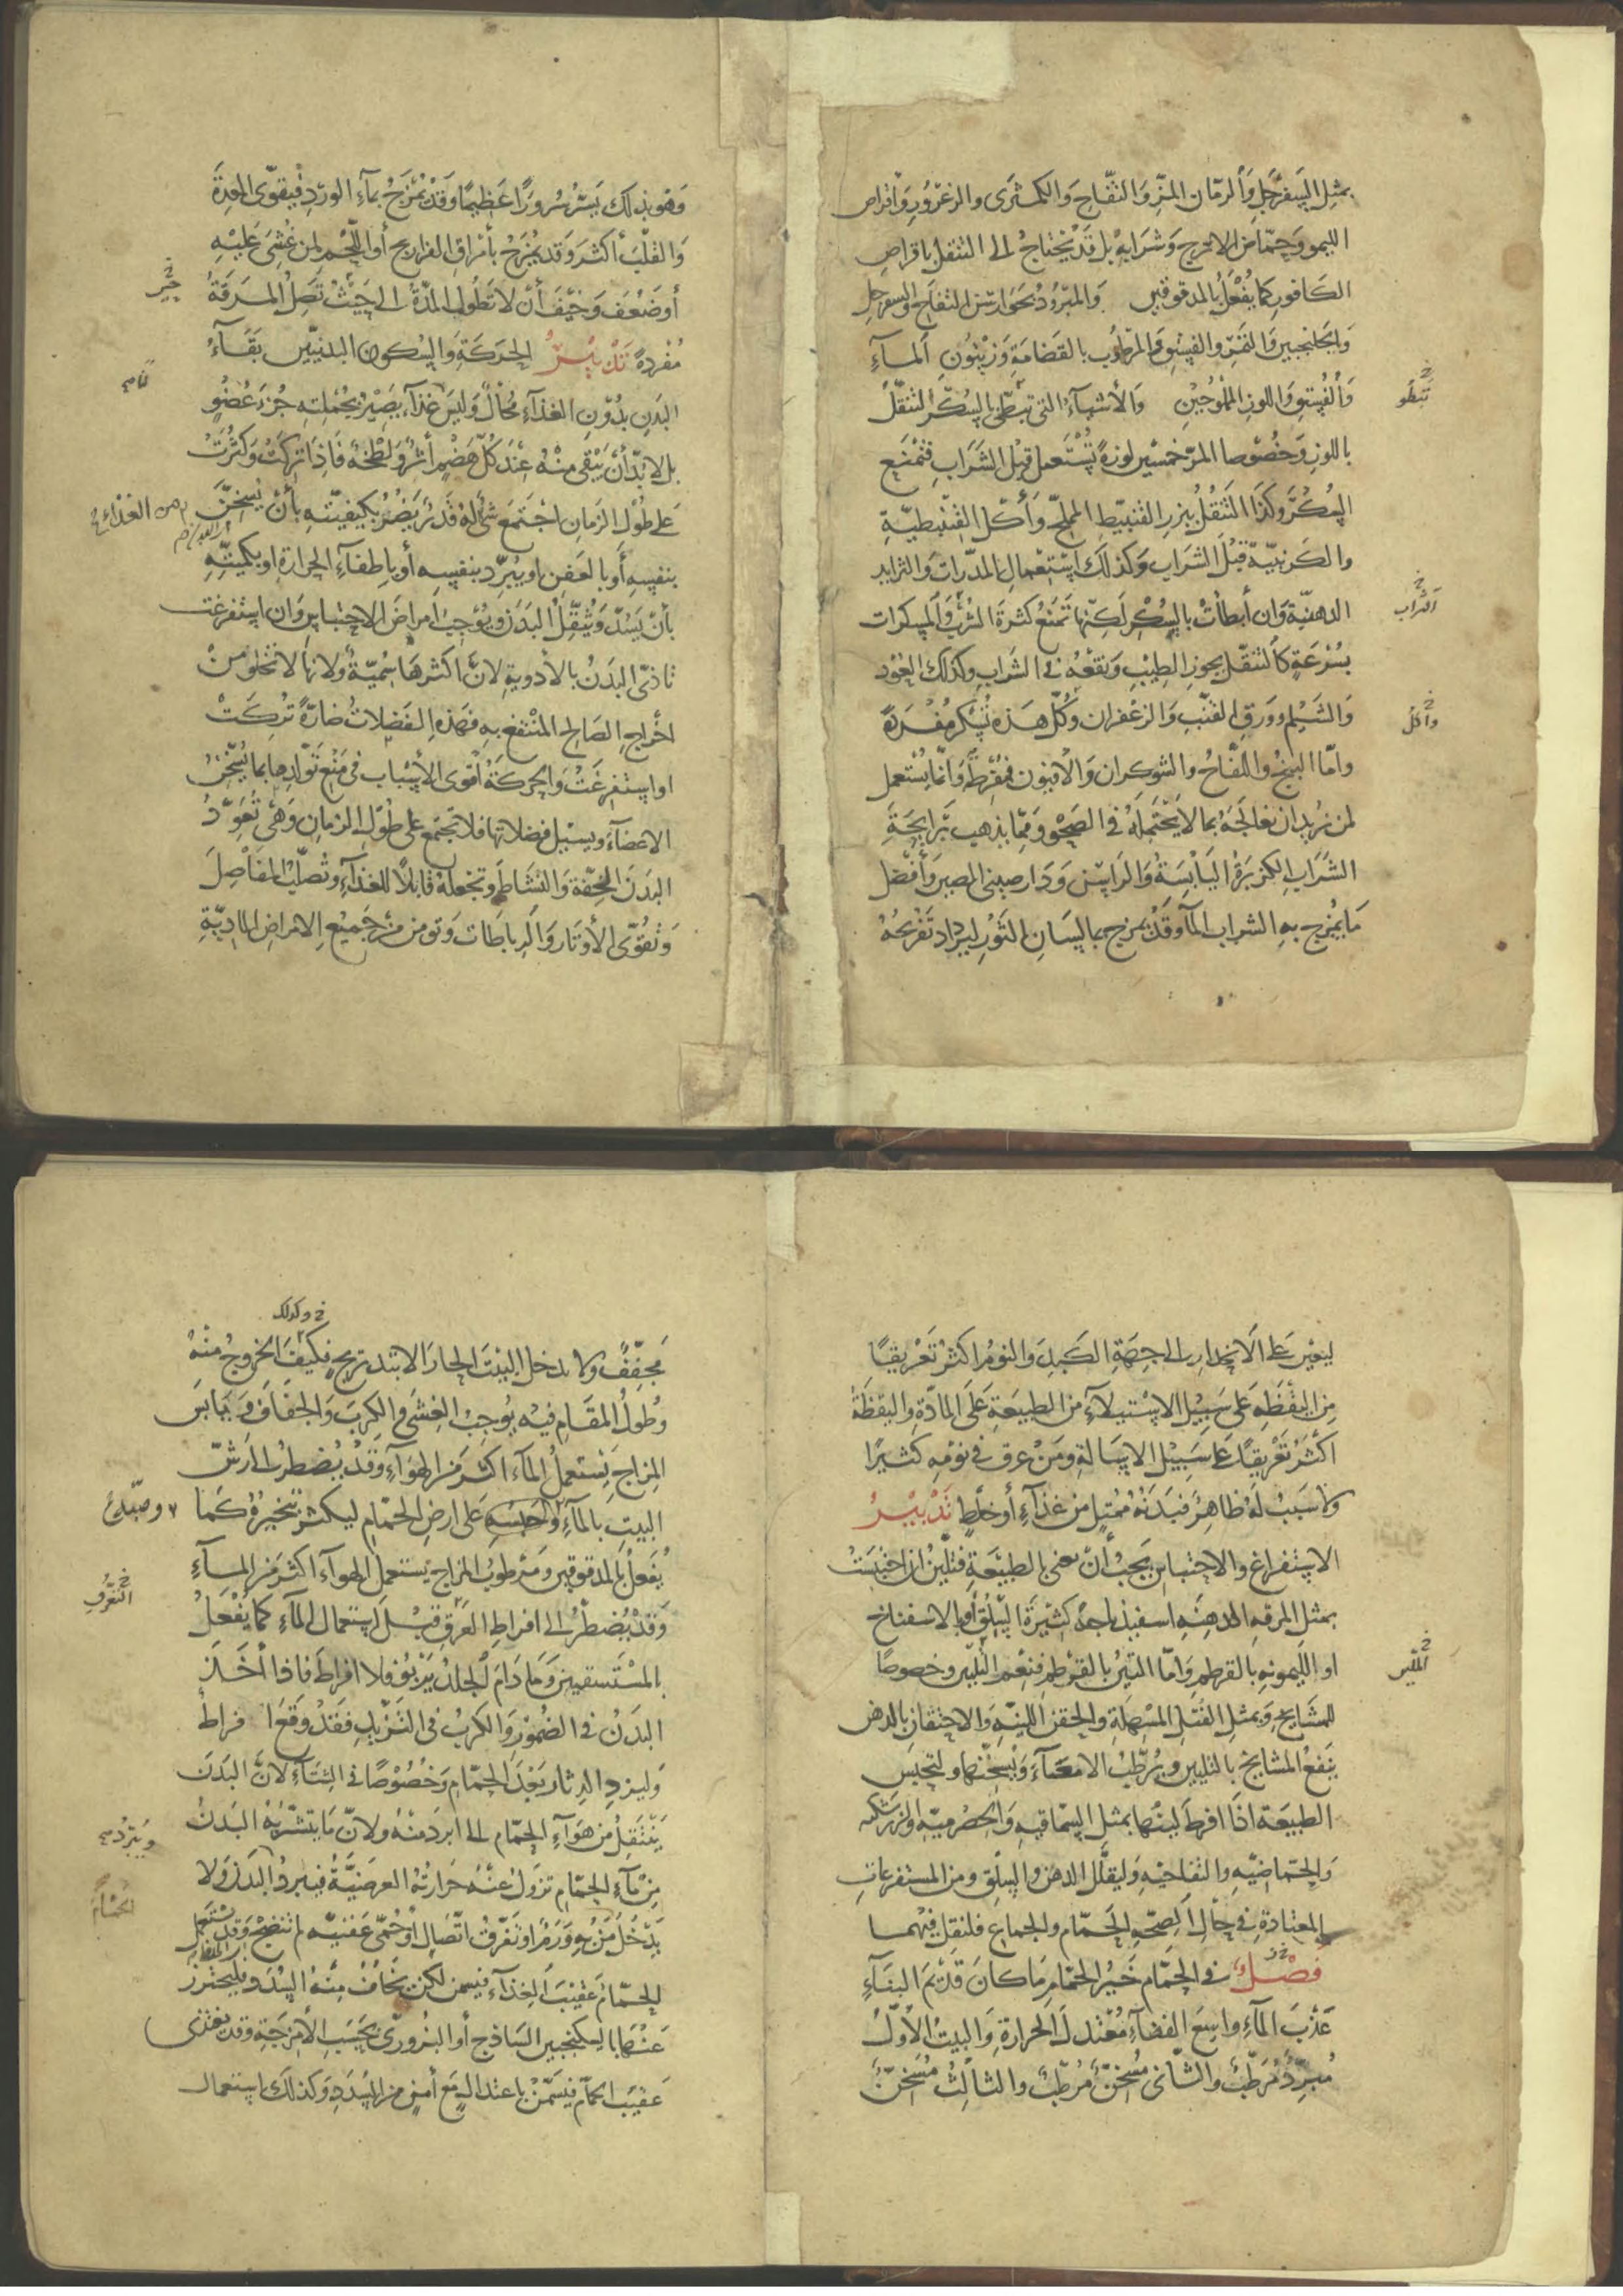 بمثل السفرجل والرمان المز والتفاح والكمثرى والزعرور واقراص
الليمو وحماض الاترج وشرابه بل قد يحتاج الى التنقل باقراص
الكافور كما يفعل بالمدقوقين والمبرود بجوارش التفاح والسفرجل
وبالجلنجبين والتمر والفستق والمرطوب بالقضامة وزيتون الماء
والفستق واللوز المملوحين والأشياء التى تبطئ بالسكر التنقل
باللوز وخصوصا المر خمسين لوزة تستعمل قبل الشراب فتمنع
السكر وكذا التنقل ببزر القنبيط المملح وأكل القنبيطية
والكرنبية قبل الشراب وكذلك استعمال المدرات والثرايد
الدهنية وان أبطأت بالسكر لكنها تمنع كثرة الشرب والمسكرات
بسرعة كالتنقل بجوز الطيب ونقعه فى الشراب وكذلك العود
والشيلم وورق القنب والزعفران وكل هذه تسكر مفردة
واما البنج واللفاح والشوكران والافيون فمفرطة وانما يستعمل
لمن نريد ان نعالجه بما لا يحتمله فى الصحو ومما يذهب برايحة
الشراب الكزبرة اليابسة والراسن ودارصينى المصير وأفضل
ما يمزج به الشراب الماء وقد يمزج بماء لسان الثور ليزداد تفريحه
تبطو
الشراب
واكل
وهو بذلك يسر سرورا عظيما وقد يمزج بماء الورد فيقوى المعدة
والقلب أكثر وقد يمزج بأمراق الفراريج أو اللحم لمن غشى عليه
أو ضعف وخيف أن لا تطول المدة الى حيث تصل المرقة
مفردة تدبير الحركة والسكون البدنيين بقاء
البدن بدون الغذاء محال وليس غذاء يصير بجملته جزء عضو
بل لا بد أن يبقى منه عند كل هضم أثر ولطخة فاذا تركت وكثرت
على طول الزمان اجتمع شئ له قدر يضر بكيفيته بأن يسخن
بنفسه أو بالعفن او يبرد بنفسه أو باطفاء الحرارة او بكميته
بأن يسد ويثقل البدن ويوجب امراض الاحتباس وان استفرغت
تاذى البدن بالأدوية لان أكثرها سمية ولانها لا تخلو من
اخراج الصالح المنتفع به فهذه الفضلات ضارة تركت
او استفرغت والحركة أقوى الأسباب فى منع تولدها بما يسخن
الاعضاء ويسيل فضلاتها فلا تجتمع على طول الزمان وهى تعود
البدن الخفة والنشاط وتجعله قابلا للغذاء وتصلب المفاصل
وتقوى الأوتار والرباطات وتومن من جميع الامراض المادية
من الغذاء
ليعين على الانحدار الى جهة الكبد والنوم اكثر تعريقا
من اليقظة على سبيل الاستيلاء من الطبيعة على المادة واليقظة
اكثر تعريقا على سبيل الاسالة ومن عرق فى نومه كثيرا
ولا سبب له ظاهر فبدنه ممتلئ من غذاء أو خلط تدبير
الاستفراغ والاحتباس يجب أن نعنى بالطبيعة فتلين ان احتبست
بمثل المرقه الدهنيه اسفيذباجه كثيرة السلق أو بالاسفناخ
او الليمونيه بالقرطم واما التين بالقرطم فنعم الملين وخصوصا
للمشايخ وبمثل الفتل المسهلة والحقن اللينه والاحتقان بالدهن
ينفع المشايخ بالتليين ويرطب الامعاء ويسخنها ولتحبس
الطبيعة اذا افرط لينها بمثل السماقيه والحصرميه والزرشكيه
والحماضيه والتفاحيه وليقلل الدهن والسلق ومن المستفرغات
المعتادة فى حال الصحة الحمام والجماع فلنقل فيهما
فصل فى الحمام خير الحمام ما كان قديم البناء
عذب الماء واسع الفضاء معتدل الحرارة والبيت الأول
مبرد مرطب والثانى مسخن مرطب والثالث مسخن
الملين
وكذلك
مجفف ولا يدخل البيت الحار الا بتدريج فكيف الخروج منه
وطول المقام فيه يوجب الغشى والكرب والجفاف ويابس
المزاج يستعمل الماء اكثر من الهواء وقد يضطر الى رش
البيت بالماء وحبسه على ارض الحمام ليكثر تبخيره كما
يفعل بالمدقوقين ومرطوب المزاج يستعمل الهواء اكثر من الماء
وقد يضطر الى افراط العرق قبل استعمال الماء كما يفعل
بالمستسقين وما دام الجلد يربو فلا افراط فاذا أخذ
البدن فى الضمور والكرب فى التزيد فقد وقع افراط
وليزد الدثار بعد الحمام وخصوصا فى الشتاء لان البدن
ينتقل من هواء الحمام الى ابرد منه ولان ما يتشربه البدن
من ماء الحمام تزول عنه حرارته العرضية فيبرد البدن ولا
يدخل من به ورم او تفرق اتصال أو حمى عفنية لم تنضج وقد يستعمل
الحمام عقيب الغذاء فيسمن لكن يخاف منه السدد فليحترز
عنها بالسكنجبين الساذج أو البزورى بحسب الأمزجة وقد يغتذى
عقيب الحمام فيسمن باعتدال مع أمن من السدد وكذلك استعمال
التعرق
ويبرد
الحمام